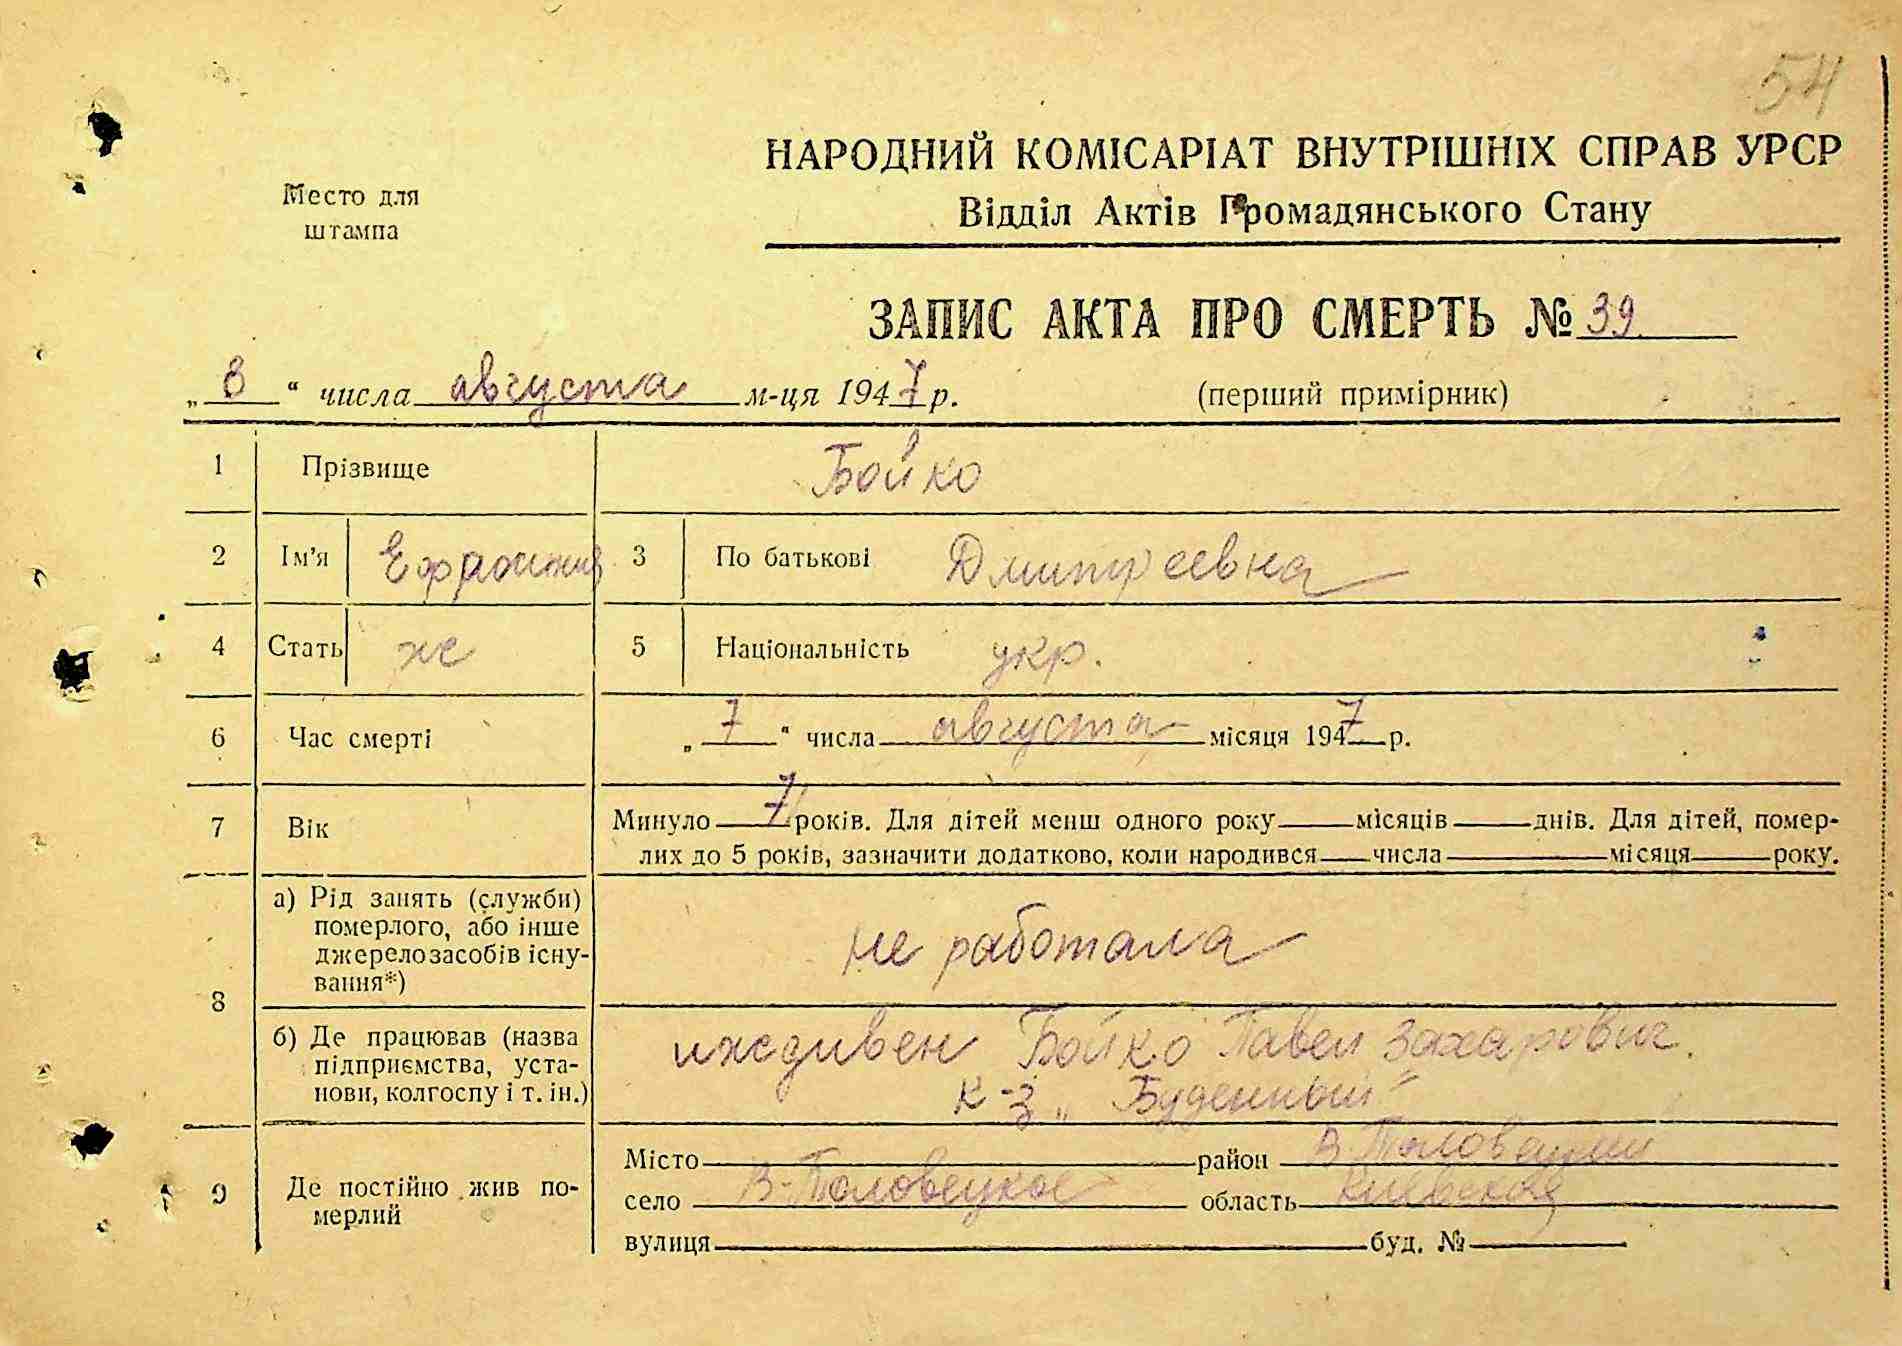 54
НАРОДНИЙ КОМІСАРІАТ ВНУТРІШНІХ СПРАВ УРСР
Відділ Актів Громадянського Стану
Место для
штампа
ЗАПИС АКТА ПРО СМЕРТЬ № 39
„8“ числа августа м-ця 1947 р. (перший примірник)
1 Прізвище Бойко
2 Ім'я Ефросиния 3 По батькові Дмитреевна
4 Стать ж 5 Національність укр.
6 Час смерті „7“ числа августа місяця 1947 р.
7 Вік Минуло 7 років. Для дітей менш одного року місяців днів. Для дітей, помер-
лих до 5 років, зазначити додатково, коли народився числа місяця року.
8 а) Рід занять (служби)
померлого, або інше
джерело засобів існу-
вання*) не работала
б) Де працював (назва
підприємства, уста-
нови, колгоспу і т. ін.) иждивен Бойко Павел Захарович.
к-з „Буденный“
9 Де постійно жив по-
мерлий
Місто район В-Половецкий
село В-Половецкое область Киевская
вулиця буд. №